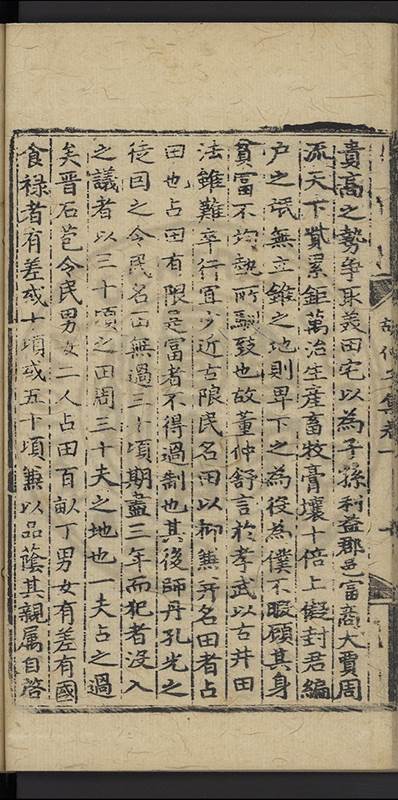 貴高之勢爭取美田宅以為子孫利益郡邑富商大賈周
流天下貲累鉅萬治生産畜牧膏壤十倍上儗封君編
户之氓無立錐之地則卑下之為役為僕不暇顧其身
貧富不均勢所駆致也故董仲舒言於孝武以古井田
法雖難卒行宜少近古限民名田以抑兼并名田者占
田也占田有限是富者不得過制也其後師丹孔光之
徒因之令民名田無過三十頃期盡三年而犯者没入
之議者以三十頃之田周三十夫之地也一夫占之過
矣晋石苞令民男女二人占田百畝丁男女有差有國
食禄者有差或十頃或五十頃兼以品蔭其親属自啓